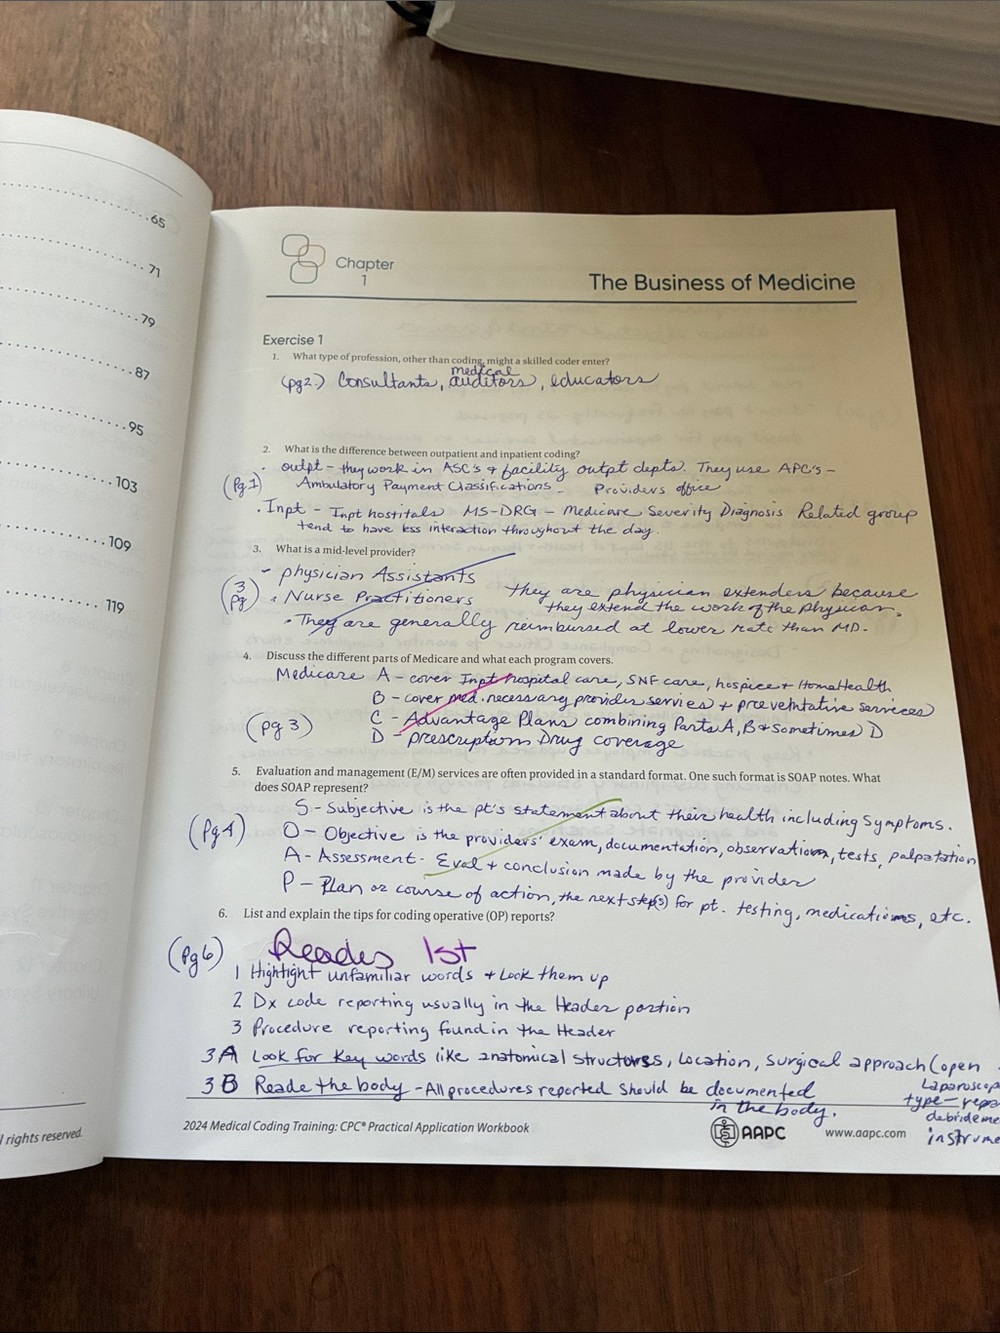 65
71
79
87
95
103
109
119
l rights reserved.
Chapter
1
The Business of Medicine
Exercise 1
1. What type of profession, other than coding, might a skilled coder enter?
medical
(pg2.) Consultants, auditors, educators
2. What is the difference between outpatient and inpatient coding?
. outpt - they work in ASC's + facility outpt depts. They use APC's -
(Pg.1) Ambulatory Payment Classifications - Providers office
. Inpt - Inpt hostitals MS-DRG - Medicare Severity Diagnosis Related group
tend to have less interaction throughout the day.
3. What is a mid-level provider?
- physician Assistants
(3 pg) . Nurse Practitioners they are physician extenders because
they extend the work of the physican.
. They are generally reimbursed at lower rate than MD.
4. Discuss the different parts of Medicare and what each program covers.
Medicare A - cover Inpt hospital care, SNF care, hospice + HomeHealth
B - cover med. necessary provider servies + preventative services
(pg 3) C - Advantage Plans combining Parts A, B & Sometimes D
D - prescription Drug coverage
5. Evaluation and management (E/M) services are often provided in a standard format. One such format is SOAP notes. What
does SOAP represent?
S - Subjective is the pt's statement about their health including Symptoms.
(Pg 4) O - Objective is the providers' exam, documentation, observation, tests, palpatation
A - Assessment - Eval + conclusion made by the provider
P - Plan or course of action, the next step(s) for pt. testing, medications, etc.
6. List and explain the tips for coding operative (OP) reports?
(Pg 6) Reades 1st
1 Hightight unfamiliar words + Look them up
2 Dx code reporting usually in the Header portion
3 Procedure reporting found in the Header
3A Look for Key words like anatomical structures, Location, Surgical approach (open
Laparoscop
3B Reade the body - All procedures reported should be documented
in the body.
type - repa
debrideme
instrume
2024 Medical Coding Training: CPC® Practical Application Workbook
AAPC
www.aapc.com